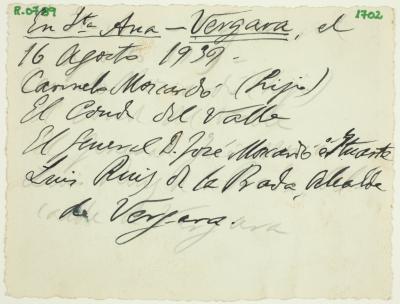 R.0789
1702
En Sta Ana - Vergara, el
16 Agosto 1939.
Carmelo Moscardó (hijo)
El Conde del Valle
El General D. José Moscardó é Ituarte
Luis Ruiz de la Prada, Alcalde
de Vergara.